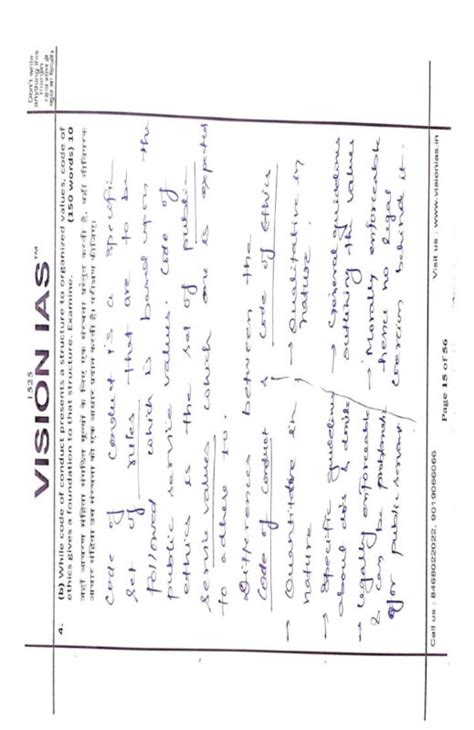 1525
VISION IAS™
Don't write
anything this
margin
4. (b) While code of conduct presents a structure to organized values, code of
ethics gives a foundation to that structure. Examine. (150 words) 10
Code of conduct is a specific
set of rules that are to be
followed which is based upon the
public service values. Code of
ethics is the set of public
service values which one is expected
to adhere to.
Differences between the
Code of conduct & Code of Ethics
→ Quantitative in nature → Qualitative in nature
→ Specific guidelines about do's & don'ts → General guidelines outlining the values
→ legally enforceable & can be for public servant → Morally enforceable hence no legal coercion behind it.
Call us : 8468022022, 9019066066 Page 15 of 56 Visit us : www.visionias.in